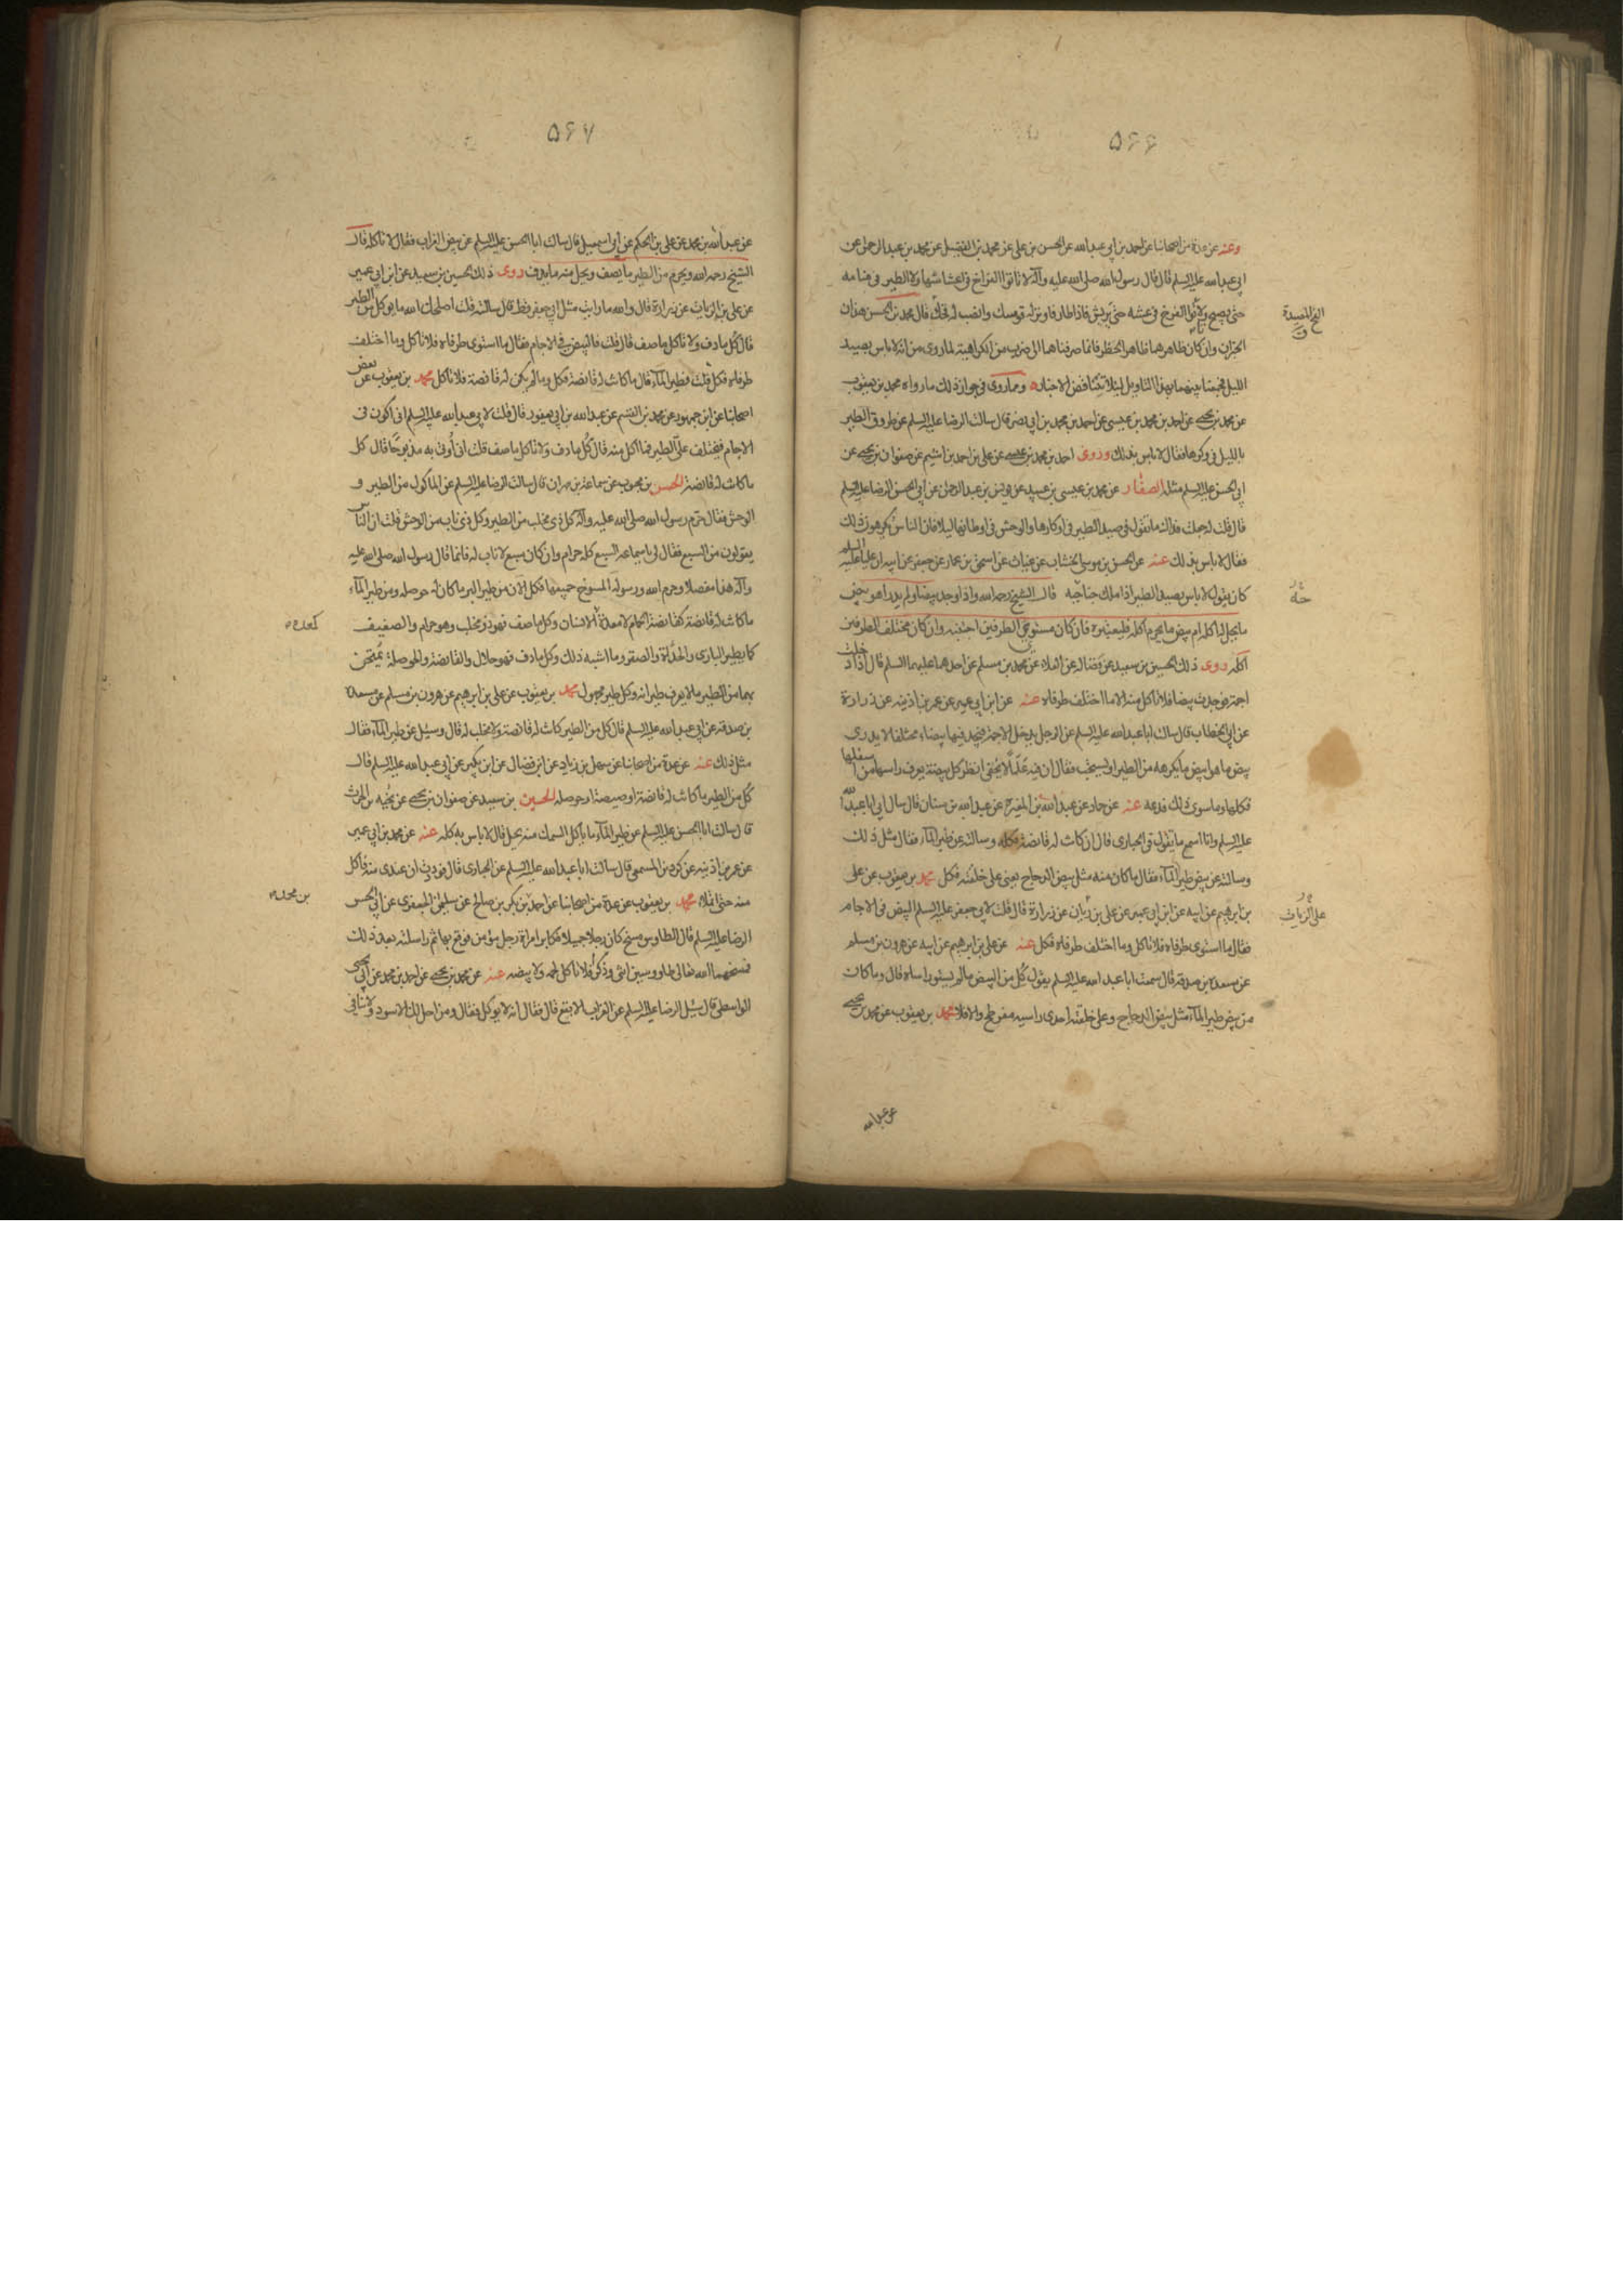 ۵۶۶
وعنه عن عدة من اصحابنا عن احمد بن ابي عبد الله عن الحسن بن علي عن محمد بن الفضيل عن محمد بن عبد الرحمن عن
ابي عبد الله عليه السلم قال قال رسول الله صلى الله عليه وآله لا تاتوا الفراخ في اعشاشها ولا الطير في منامه
حتى يصبح ولا تاتوا الفرخ في عشه حتى يريش فاذا طار فاوتر له قوسك وانصب له فخك قال محمد بن الحسن هذان
الخبران وان كان ظاهرهما ظاهر الحظر فانما صرفناهما الى ضرب من الكراهية لما روى من انه لا باس بصيد
الليل فجمعنا بينهما بهذا التاويل ليلا تتناقض الاخبار ومما روى في جواز ذلك ما رواه محمد بن يعقوب
عن محمد بن يحيى عن احمد بن محمد بن عيسى عن احمد بن محمد بن ابي نصر قال سالت الرضا عليه السلم عن طروق الطير
بالليل في وكرها فقال لا باس بذلك وروى احمد بن محمد بن عيسى عن علي بن احمد بن اشيم عن صفوان بن يحيى عن
ابي الحسن عليه السلم مثله الصفار عن محمد بن عيسى بن عبيد عن يونس بن عبد الرحمن عن ابي الحسن الرضا عليه السلم
قال قلت له جعلت فداك ما تقول في صيد الطير في اوكارها والوحش في اوطانها ليلا فان الناس يكرهون ذلك
فقال لا باس بذلك عنه عن الحسن بن موسى الخشاب عن غياث عن اسحق بن عمار عن جعفر عن ابيه ان عليا عليه السلم
كان يقول لا باس بصيد الطير اذا ملك جناحيه قال الشيخ رحمه الله واذا وجد بيضا ولم يدر اهو بيض
ما يحل اكله ام بيض ما يحرم اكله فليعتبره فان كان مستوي الطرفين اجتنبه وان كان مختلف الطرفين
اكله روى ذلك الحسين بن سعيد عن فضالة عن العلاء عن محمد بن مسلم عن احدهما عليهما السلم قال اذا دخلت
اجمة فوجدت بيضا فلا تاكل منه الا ما اختلف طرفاه عنه عن ابن ابي عمير عن عمر بن اذينه عن زرارة
عن ابي الخطاب قال سالت ابا عبد الله عليه السلم عن الرجل يدخل الاجمة فيجد فيها بيضا مختلفا لا يدري
بيض ما هو ابيض ما يكره من الطير او يستحب فقال ان فيه علما لا يخفى انظر كل بيضة يعرف راسها من اسفلها
فكلها وما سوى ذلك فدعه عنه عن حماد عن عبد الله بن المغيرة عن عبد الله بن سنان قال سال ابي ابا عبد الله
عليه السلم وانا اسمع ما يقول في الحبارى قال ان كانت له قانصة فكله وسالته عن طير الماء فقال مثل ذلك
وسالته عن بيض طير الماء فقال ما كان منه مثل بيض الدجاج يعني على خلقته فكل محمد بن يعقوب عن علي
بن ابرهيم عن ابيه عن ابن ابي عمير عن علي بن رئاب عن زرارة قال قلت لابي جعفر عليه السلم البيض في الاجام
فقال ما استوى طرفاه فلا تاكل وما اختلف طرفاه فكل عنه عن علي بن ابرهيم عن ابيه عن هرون بن مسلم
عن مسعدة بن صدقة قال سمعت ابا عبد الله عليه السلم يقول كل من البيض ما لم يستو راساه قال وما كان
من بيض طير الماء مثل بيض الدجاج وعلى خلقته احدى راسيه مفرطح والا فلا محمد بن يعقوب عن محمد بن يحيى
الفخ المصيدة
ق
علي الزيات
عن عبد الله
۵۶۷
عن عبد الله بن محمد عن علي بن الحكم عن ابي اسمعيل قال سالت ابا الحسن عليه السلم عن بيض الغراب فقال لا تاكله قال
الشيخ رحمه الله ويحرم من الطير ما يصف ويحل منه ما يدف روى ذلك الحسين بن سعيد عن ابن ابي عمير
عن علي بن الزيات عن زرارة قال والله ما رايت مثل ابي جعفر قط قال سالته قلت اصلحك الله ما يوكل من الطير
قال كل ما دف ولا تاكل ما صف قال قلت فالبيض في الاجام فقال ما استوى طرفاه فلا تاكل وما اختلف
طرفاه فكل قلت فطير الماء قال ما كانت له قانصة فكل وما لم يكن له قانصة فلا تاكل محمد بن يعقوب عن بعض
اصحابنا عن ابن جمهور عن محمد بن القسم عن عبد الله بن ابي يعفور قال قلت لابي عبد الله عليه السلم اني اكون في
الاجام فيختلف علي الطير فما اكل منه قال كل ما دف ولا تاكل ما صف قلت اني اوتى به مذبوحا قال كل
ما كانت له قانصة الحسن بن محبوب عن سماعة بن مهران قال سالت الرضا عليه السلم عن الماكول من الطير و
الوحش فقال حرم رسول الله صلى الله عليه وآله كل ذي مخلب من الطير وكل ذي ناب من الوحش قلت ان الناس
يقولون من السبع فقال لي يا سماعة السبع كله حرام وان كان سبع لا ناب له فانما قال رسول الله صلى الله عليه
وآله هذا مفصلا وحرم الله ورسوله المسوخ جميعها فكل الان من طير البر ما كان له حوصله ومن طير الماء
ما كانت له قانصة كقانصة الحمام لا معدة الانسان وكل ما صف فهو ذو مخلب وهو حرام والصفيف
كما يطير البازي والحداة والصقر وما اشبه ذلك وكل ما دف فهو حلال والقانصة والحوصلة يمتحن
بهما من الطير ما لا يعرف طيرانه وكل طير مجهول محمد بن يعقوب عن علي بن ابرهيم عن هرون بن مسلم عن مسعدة
بن صدقة عن ابي عبد الله عليه السلم قال كل من الطير كانت له قانصة ولا مخلب له قال وسئل عن طير الماء فقال
مثل ذلك عنه عن عدة من اصحابنا عن سهل بن زياد عن ابن فضال عن ابن بكير عن ابي عبد الله عليه السلم قال
كل من الطير ما كانت له قانصة او صيصة او حوصله الحسين بن سعيد عن صفوان بن يحيى عن نجيه بن الحرث
قال سالت ابا الحسن عليه السلم عن طير الماء ما ياكل السمك منه يحل قال لا باس به كله عنه عن محمد بن ابي عمير
عن عمر بن اذينه عن كردين المسمعي قال سالت ابا عبد الله عليه السلم عن الحبارى قال فوددت ان عندي منه فآكل
منه حتى اتملا محمد بن يعقوب عن عدة من اصحابنا عن احمد بن بكر بن صالح عن سليمن الجعفري عن ابي الحسن
الرضا عليه السلم قال الطاوس مسخ كان رجلا جميلا فكابر امراة رجل مؤمن فوقع بها ثم راسلته بعد ذلك
فمسخهما الله تعالى طاووسين انثى وذكرا فلا تاكل لحمه ولا بيضه عنه عن محمد بن يحيى عن احمد بن محمد عن ابي يحيى
الواسطي قال سئل الرضا عليه السلم عن الغراب الابقع قال فقال انه لا يوكل فقال ومن احل لك الاسود ولا ينافي
كمعدة
بن محمد